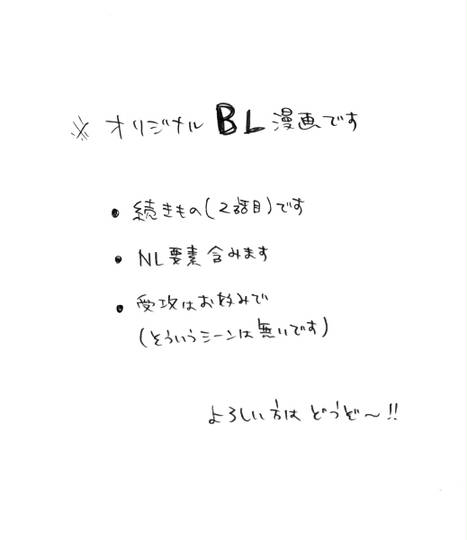 ※ オリジナル BL 漫画です
• 続きもの(2話目)です
• NL要素 含みます
• 受攻はお好みで
(そういうシーンは無いです)
よろしい方は どうぞ〜!!